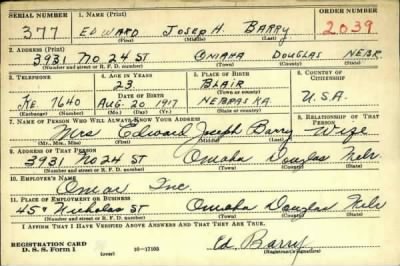 SERIAL NUMBER 1. NAME (Print) ORDER NUMBER
377 EDWARD JOSEPH BARRY 2039
(First) (Middle) (Last)
2. ADDRESS (Print)
3931 NO 24 ST OMAHA DOUGLAS NEBR.
(Number and street or R. F. D. number) (Town) (County) (State)
3. TELEPHONE 4. AGE IN YEARS 5. PLACE OF BIRTH 6. COUNTRY OF CITIZENSHIP
23 BLAIR
DATE OF BIRTH (Town or county)
KE 7640 AUG. 20 1917 NEBRASKA U.S.A.
(Exchange) (Number) (Mo.) (Day) (Yr.) (State or country)
7. NAME OF PERSON WHO WILL ALWAYS KNOW YOUR ADDRESS 8. RELATIONSHIP OF THAT PERSON
Mrs Edward Joseph Barry Wife
(Mr., Mrs., Miss) (First) (Middle) (Last)
9. ADDRESS OF THAT PERSON
3931 No 24 ST Omaha Douglas Nebr
(Number and street or R. F. D. number) (Town) (County) (State)
10. EMPLOYER'S NAME
Omar Inc.
11. PLACE OF EMPLOYMENT OR BUSINESS
45th Nicholas St Omaha Douglas Nebr
(Number and street or R. F. D. number) (Town) (County) (State)
I AFFIRM THAT I HAVE VERIFIED ABOVE ANSWERS AND THAT THEY ARE TRUE.
REGISTRATION CARD
D. S. S. Form 1 (over) 16-17105 Ed. Barry